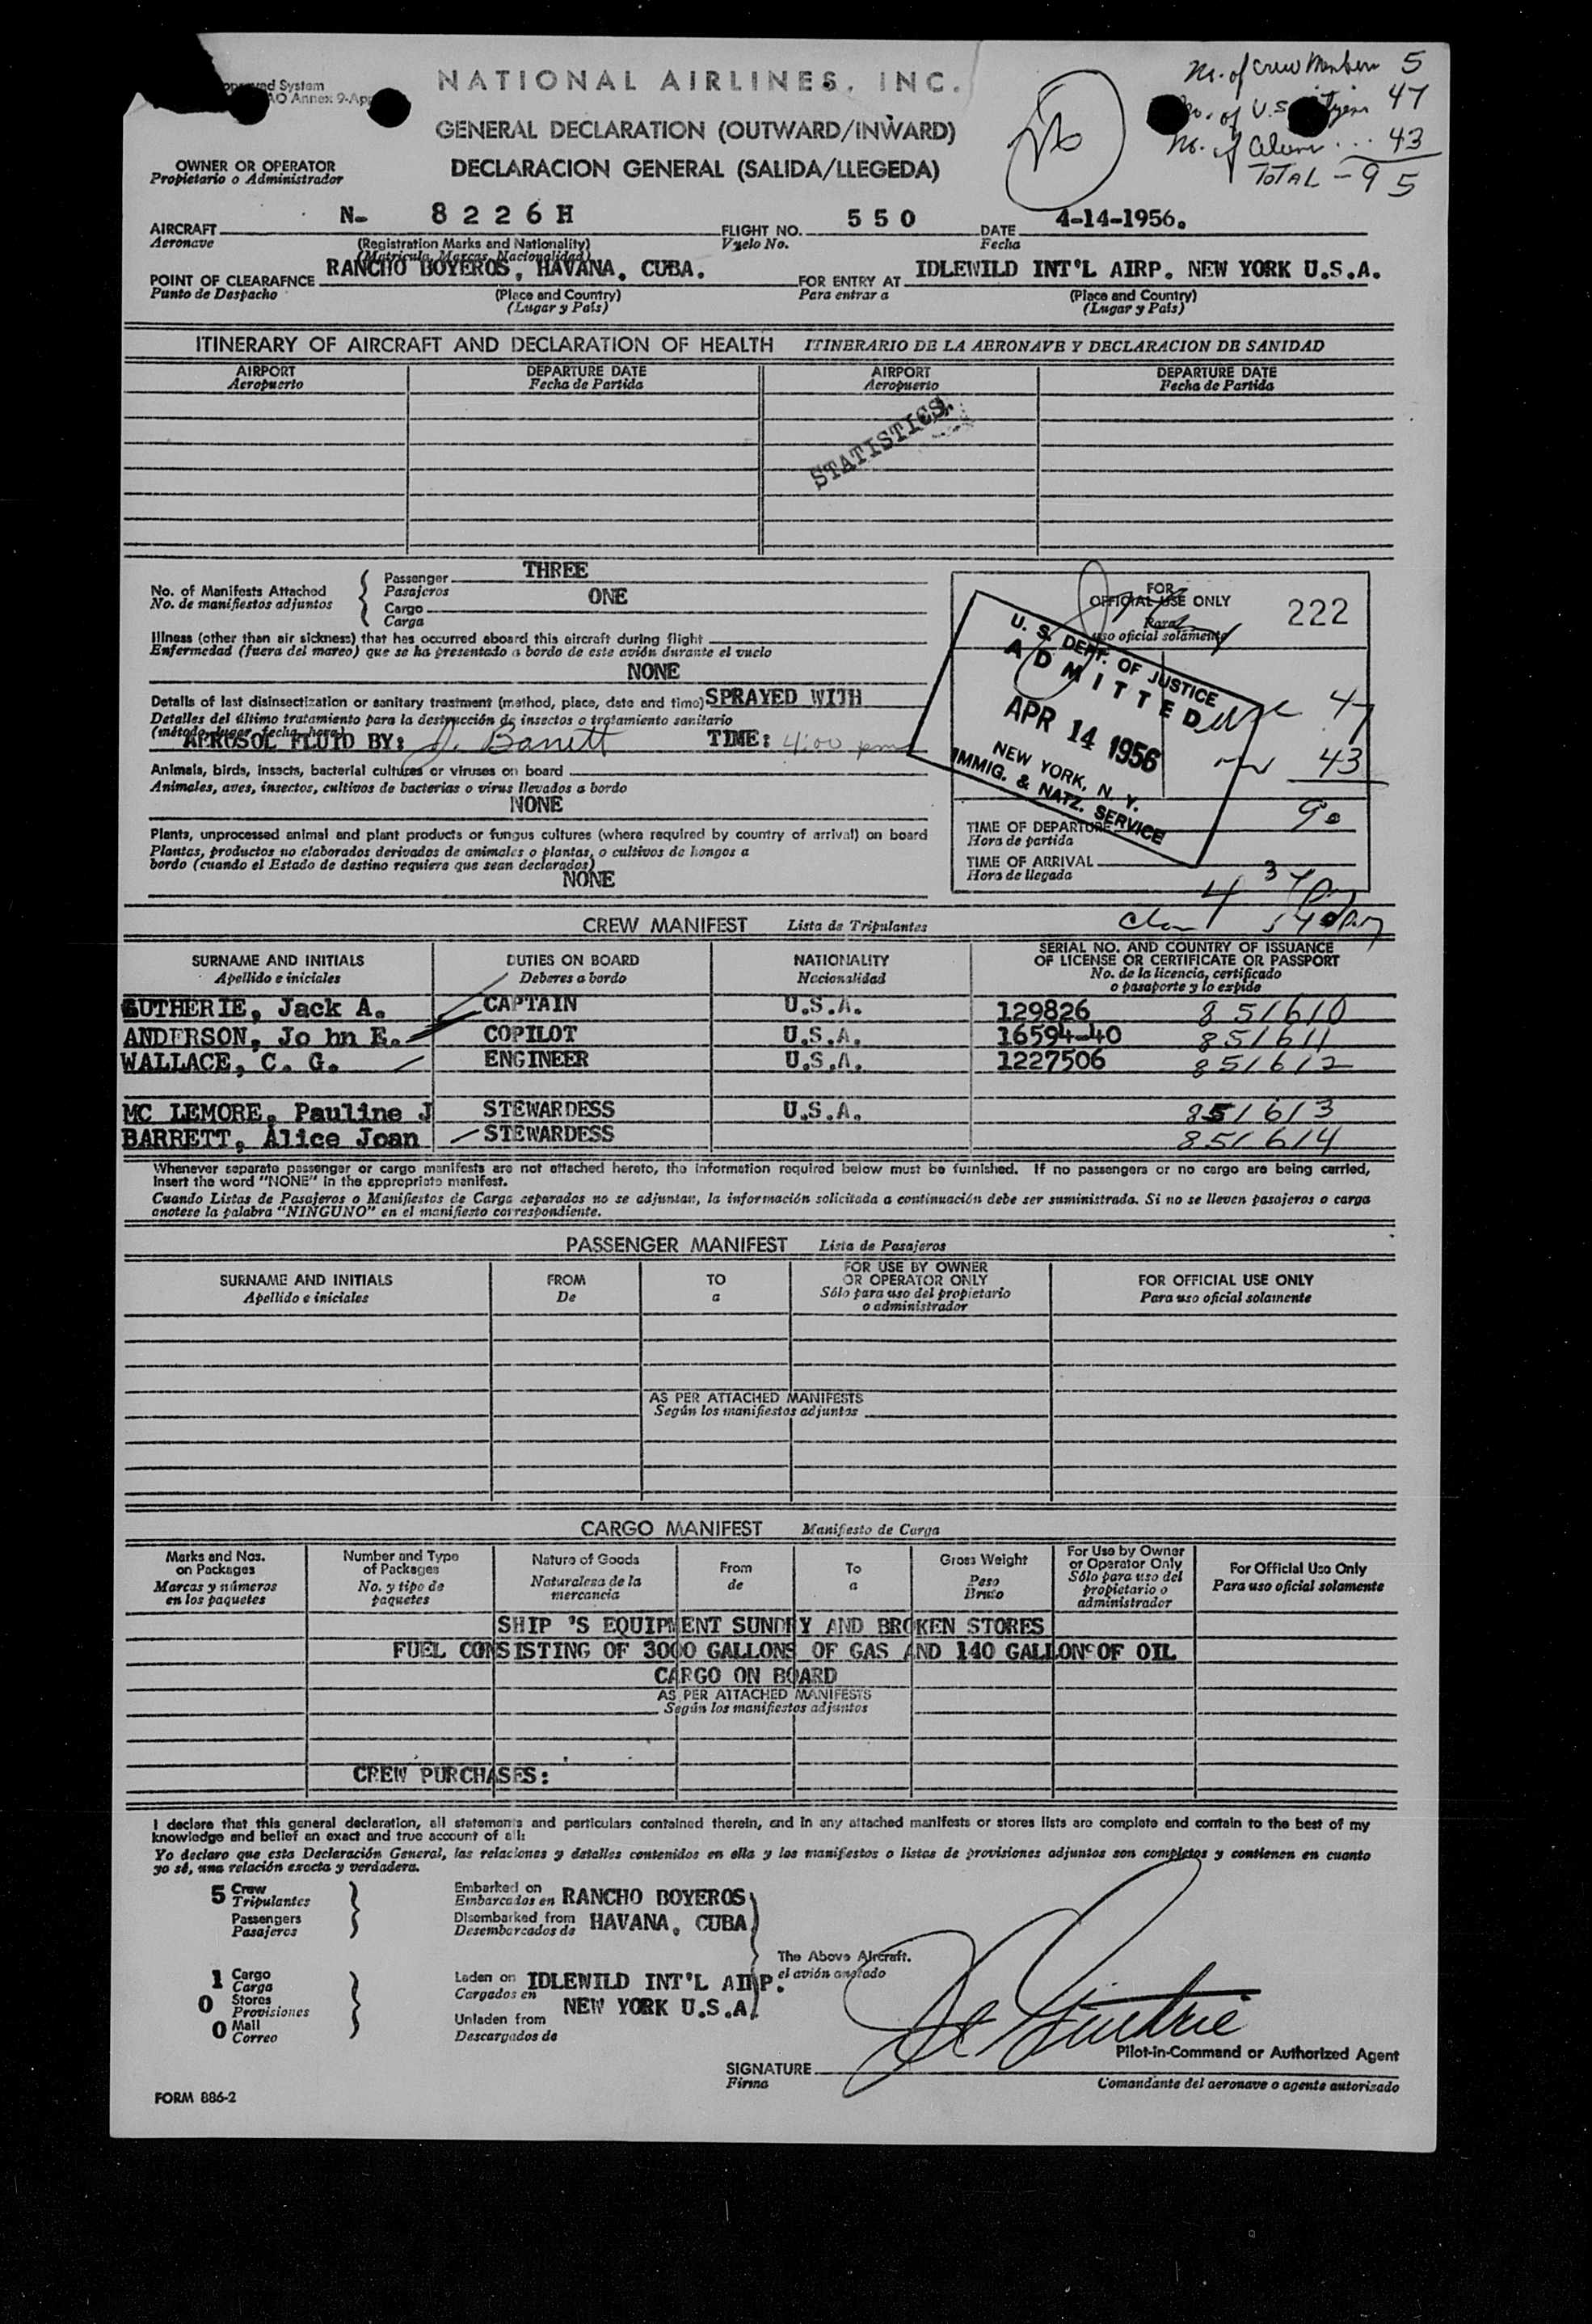 NATIONAL AIRLINES, INC.
System
AO Annex 9-App
GENERAL DECLARATION (OUTWARD/INWARD)
DECLARACION GENERAL (SALIDA/LLEGEDA)
No. of Crew Members 5
No. of U.S. 47
No. of Aliens ... 43
TOTAL - 95
OWNER OR OPERATOR
Propietario o Administrador
AIRCRAFT N- 8226H FLIGHT NO. 550 DATE 4-14-1956.
Aeronave (Registration Marks and Nationality) Vuelo No. Fecha
(Matricula, Marcas, Nacionalidad)
POINT OF CLEARAFNCE RANCHO BOYEROS, HAVANA, CUBA. FOR ENTRY AT IDLEWILD INT'L AIRP. NEW YORK U.S.A.
Punto de Despacho (Place and Country) Para entrar a (Place and Country)
(Lugar y País) (Lugar y País)
ITINERARY OF AIRCRAFT AND DECLARATION OF HEALTH ITINERARIO DE LA AERONAVE Y DECLARACION DE SANIDAD
AIRPORT DEPARTURE DATE AIRPORT DEPARTURE DATE
Aeropuerto Fecha de Partida Aeropuerto Fecha de Partida
STATISTICS.
No. of Manifests Attached
No. de manifiestos adjuntos
Passenger THREE
Pasajeros
Cargo ONE
Carga
Illness (other than air sickness) that has occurred aboard this aircraft during flight
Enfermedad (fuera del mareo) que se ha presentado a bordo de este avión durante el vuelo
NONE
Details of last disinsectization or sanitary treatment (method, place, date and time) SPRAYED WITH
Detalles del último tratamiento para la destrucción de insectos o tratamiento sanitario
(método, lugar, fecha, hora)
AEROSOL FLUID BY: J. Barrett TIME: 4:00 pm
Animals, birds, insects, bacterial cultures or viruses on board
Animales, aves, insectos, cultivos de bacterias o virus llevados a bordo
NONE
Plants, unprocessed animal and plant products or fungus cultures (where required by country of arrival) on board
Plantas, productos no elaborados derivados de animales o plantas, o cultivos de hongos a
bordo (cuando el Estado de destino requiera que sean declarados)
NONE
FOR
OFFICIAL USE ONLY 222
Para
uso oficial solamente
U. S. DEPT. OF JUSTICE
ADMITTED
APR 14 1956
NEW YORK, N. Y.
IMMIG. & NATZ. SERVICE
47
43
90
TIME OF DEPARTURE
Hora de partida
TIME OF ARRIVAL
Hora de llegada
CREW MANIFEST Lista de Tripulantes
SURNAME AND INITIALS DUTIES ON BOARD NATIONALITY SERIAL NO. AND COUNTRY OF ISSUANCE
OF LICENSE OR CERTIFICATE OR PASSPORT
Apellido e iniciales Deberes a bordo Nacionalidad No. de la licencia, certificado
o pasaporte y lo expide
GUTHERIE, Jack A. CAPTAIN U.S.A. 129826 851610
ANDERSON, Jo hn E. COPILOT U.S.A. 16594-40 851611
WALLACE, C. G. ENGINEER U.S.A. 1227506 851612
MC LEMORE, Pauline J STEWARDESS U.S.A. 851613
BARRETT, Alice Joan STEWARDESS 851614
Whenever separate passenger or cargo manifests are not attached hereto, the information required below must be furnished. If no passengers or no cargo are being carried,
insert the word "NONE" in the appropriate manifest.
Cuando Listas de Pasajeros o Manifiestos de Carga separados no se adjuntan, la información solicitada a continuación debe ser suministrada. Si no se lleven pasajeros o carga
anotese la palabra "NINGUNO" en el manifiesto correspondiente.
PASSENGER MANIFEST Lista de Pasajeros
SURNAME AND INITIALS FROM TO FOR USE BY OWNER OR OPERATOR ONLY FOR OFFICIAL USE ONLY
Apellido e iniciales De a Sólo para uso del propietario o administrador Para uso oficial solamente
AS PER ATTACHED MANIFESTS
Según los manifiestos adjuntos
CARGO MANIFEST Manifiesto de Carga
Marks and Nos. on Packages Number and Type of Packages Nature of Goods From To Gross Weight For Use by Owner or Operator Only For Official Use Only
Marcas y números en los paquetes No. y tipo de paquetes Naturalesa de la mercancia de a Peso Bruto Sólo para uso del propietario o administrador Para uso oficial solamente
SHIP 'S EQUIPMENT SUNDRY AND BROKEN STORES
FUEL CONSISTING OF 3000 GALLONS OF GAS AND 140 GALLONS OF OIL
CARGO ON BOARD
AS PER ATTACHED MANIFESTS
Según los manifiestos adjuntos
CREW PURCHASES:
I declare that this general declaration, all statements and particulars contained therein, and in any attached manifests or stores lists are complete and contain to the best of my
knowledge and belief an exact and true account of all:
Yo declaro que esta Declaración General, las relaciones y detalles contenidos en ella y los manifestos o listas de provisiones adjuntos son completos y contienen en cuanto
yo sé, una relación exacta y verdadera.
5 Crew
Tripulantes
Passengers
Pasajeros
Embarked on
Embarcados en RANCHO BOYEROS
Disembarked from HAVANA, CUBA
Desembarcados de
The Above Aircraft.
el avión anotado
1 Cargo
Carga
0 Stores
Provisiones
0 Mail
Correo
Laden on IDLEWILD INT'L AIRP.
Cargados en NEW YORK U.S.A.
Unladen from
Descargados de
Pilot-in-Command or Authorized Agent
SIGNATURE
Firma Comandante del aeronave o agente autorizado
FORM 886-2